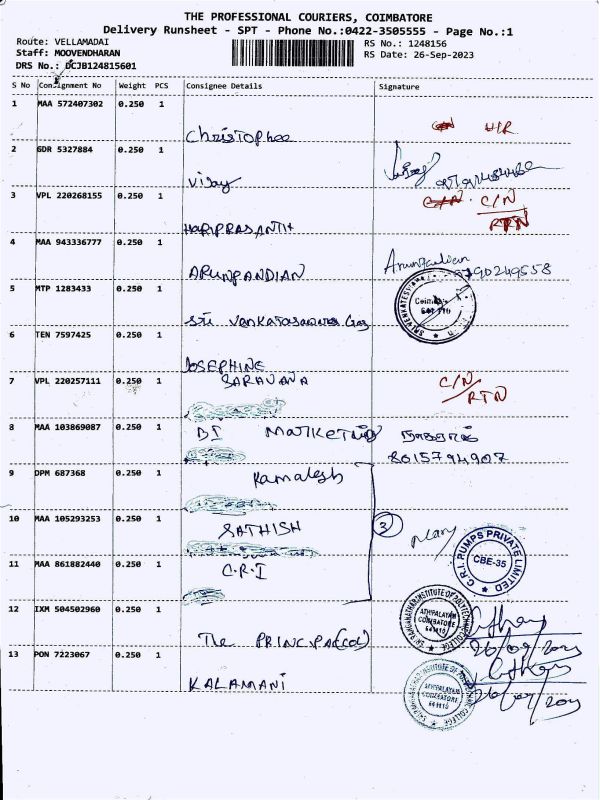 THE PROFESSIONAL COURIERS, COIMBATORE
Delivery Runsheet - SPT - Phone No.:0422-3505555 - Page No.:1
Route: VELLAMADAI
RS No.: 1248156
Staff: MOOVENDHARAN
RS Date: 26-Sep-2023
DRS No.: DCJB124815601
S No Consignment No Weight PCS Consignee Details Signature
1 MAA 572407302 0.250 1
Christopher
2 GDR 5327884 0.250 1
Vijay
3 VPL 220268155 0.250 1 C/N C/N
RTN
HARIPRASANTH
4 MAA 943336777 0.250 1
ARUNPANDIAN Arunpandian
9790249558
5 MTP 1283433 0.250 1
Sri Venkatasawara Gas
6 TEN 7597425 0.250 1
JOSEPHINE
7 VPL 220257111 0.250 1 SARAVANA C/N
RTN
8 MAA 103869087 0.250 1 BI Marketing
8015794907
9 DPM 687368 0.250 1 Kamalesh
10 MAA 105293253 0.250 1 SATHISH 3
C.R.I. PUMPS PRIVATE LIMITED
CBE-35
11 MAA 861882440 0.250 1 C.R.I
12 IXM 504502960 0.250 1
The PRINCIPAL(COL)
ATHIPALAYAM
COIMBATORE
641110
26/09/2023
13 PON 7223067 0.250 1
KALAMANI
ATHIPALAYAM
COIMBATORE
641110
26/09/2023